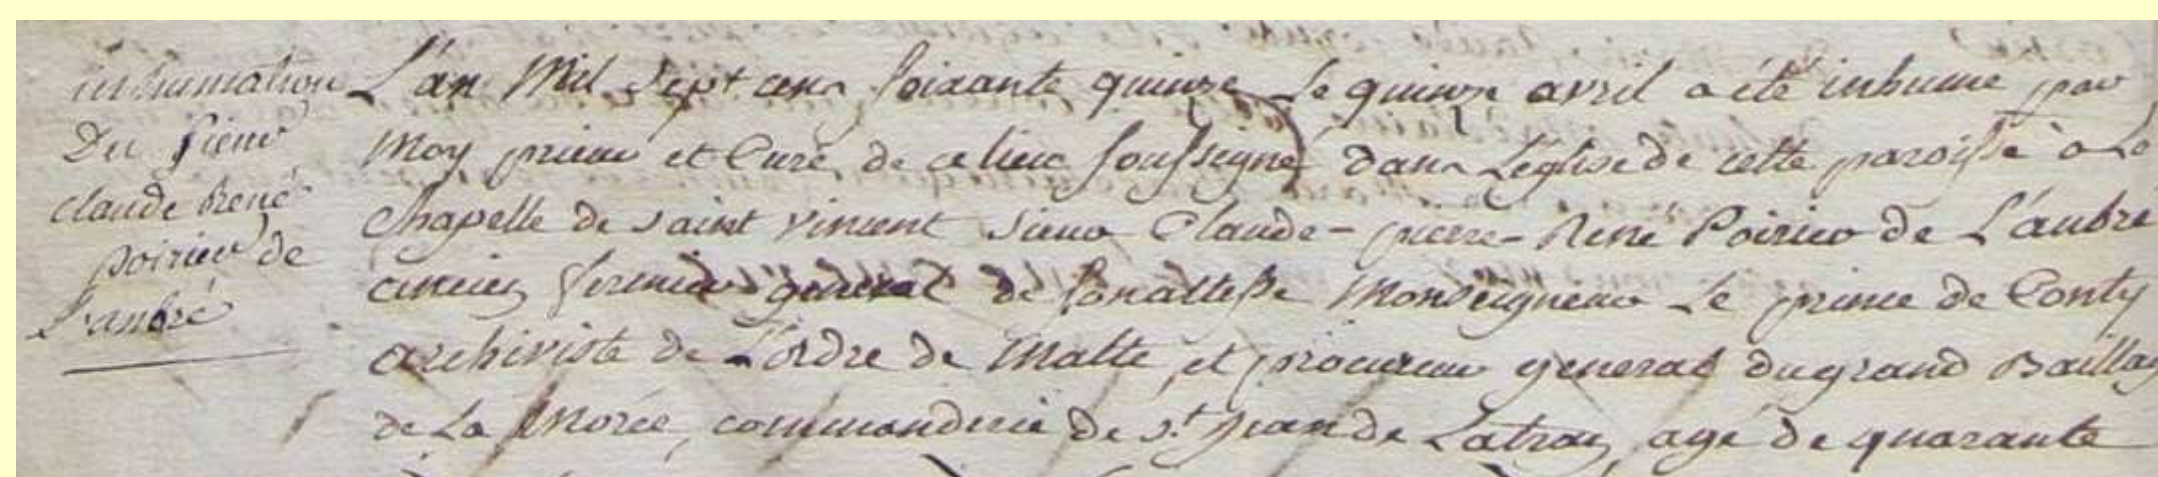 inhumation
Du sieur
claude René
poirier de
L'aubré
L'an Mil Sept cens soixante quinze Le quinze avril a été inhumé par
Moy prieur et Curé de ce lieu soussigné dans L'église de cette paroisse à La
Chapelle de saint vincent sieur Claude-pierre-René Poirier de L'aubré
ancien fermier général de son altesse Monseigneur Le prince de Conty
archiviste de L'ordre de Malte, et procureur general du grand Baillag
de La Morée, commanderie de st Jean de Latran, agé de quarante